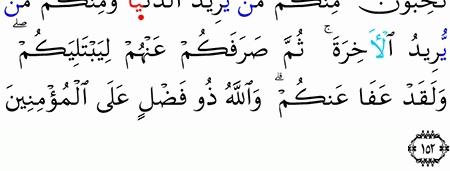 تُحِبُّونَ ۚ مِنكُم مَّن يُرِيدُ ٱلدُّنْيَا وَمِنكُم مَّن
يُرِيدُ ٱلْـَٔاخِرَةَ ۚ ثُمَّ صَرَفَكُمْ عَنْهُمْ لِيَبْتَلِيَكُمْ ۖ
وَلَقَدْ عَفَا عَنكُمْ ۗ وَٱللَّهُ ذُو فَضْلٍ عَلَى ٱلْمُؤْمِنِينَ
١٥٢